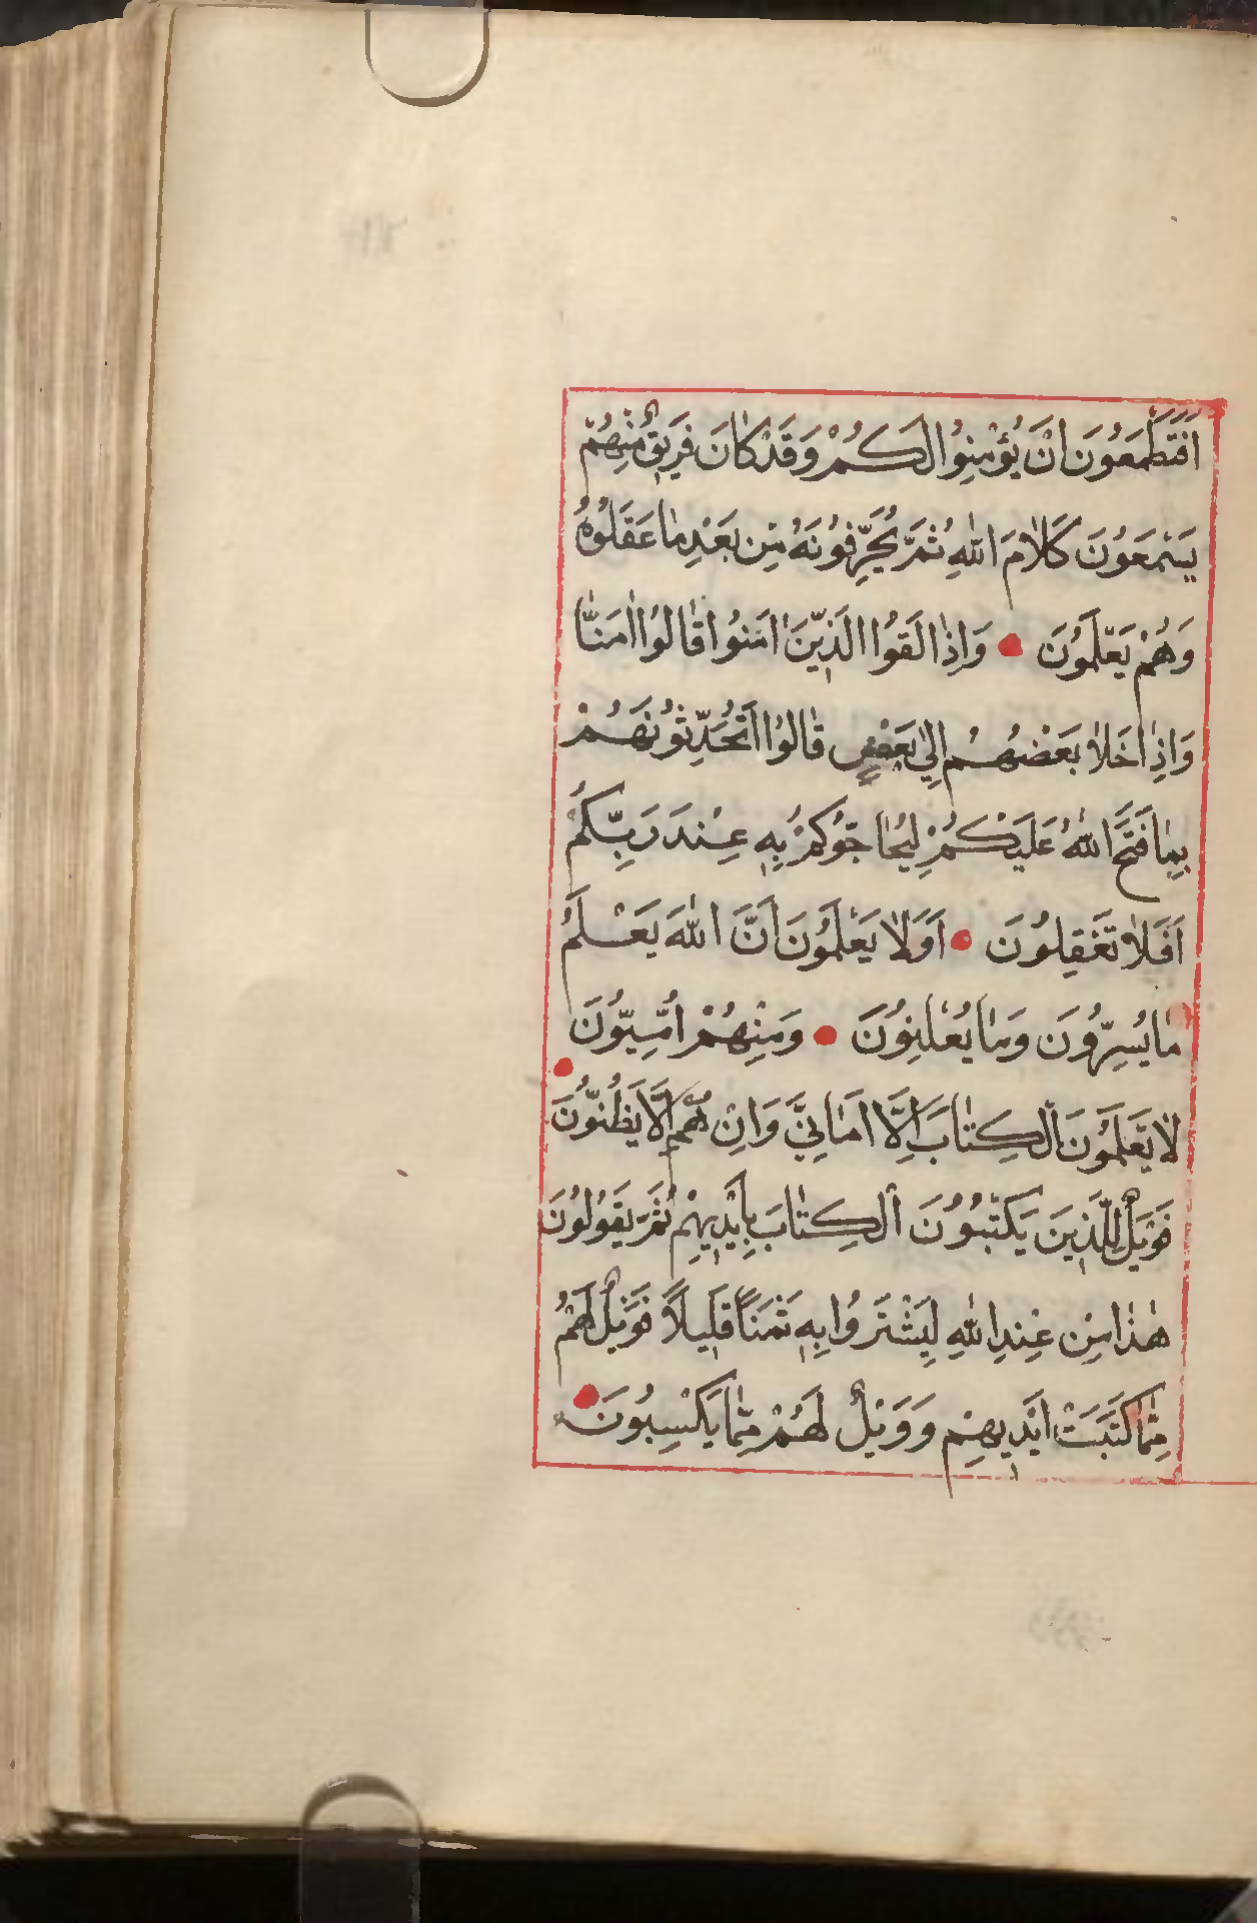 اَفَتَطْمَعُونَ اَنْ يُؤْمِنُوا لَكُمْ وَقَدْ كَانَ فَرِيقٌ مِنْهُمْ
يَسْمَعُونَ كَلَامَ اللّٰهِ ثُمَّ يُحَرِّفُونَهُ مِنْ بَعْدِ مَا عَقَلُوهُ
وَهُمْ يَعْلَمُونَ • وَاِذَا لَقُوا الَّذِينَ اٰمَنُوا قَالُوا اٰمَنَّا
وَاِذَا خَلَا بَعْضُهُمْ اِلٰى بَعْضٍ قَالُوا اَتُحَدِّثُونَهُمْ
بِمَا فَتَحَ اللّٰهُ عَلَيْكُمْ لِيُحَاجُّوكُمْ بِهٖ عِنْدَ رَبِّكُمْ
اَفَلَا تَعْقِلُونَ • اَوَلَا يَعْلَمُونَ اَنَّ اللّٰهَ يَعْلَمُ
مَا يُسِرُّونَ وَمَا يُعْلِنُونَ • وَمِنْهُمْ اُمِّيُّونَ
لَا يَعْلَمُونَ الْكِتَابَ اِلَّا اَمَانِيَّ وَاِنْ هُمْ اِلَّا يَظُنُّونَ •
فَوَيْلٌ لِلَّذِينَ يَكْتُبُونَ الْكِتَابَ بِاَيْدِيهِمْ ثُمَّ يَقُولُونَ
هٰذَا مِنْ عِنْدِ اللّٰهِ لِيَشْتَرُوا بِهٖ ثَمَنًا قَلِيلًا فَوَيْلٌ لَهُمْ
مِمَّا كَتَبَتْ اَيْدِيهِمْ وَوَيْلٌ لَهُمْ مِمَّا يَكْسِبُونَ •